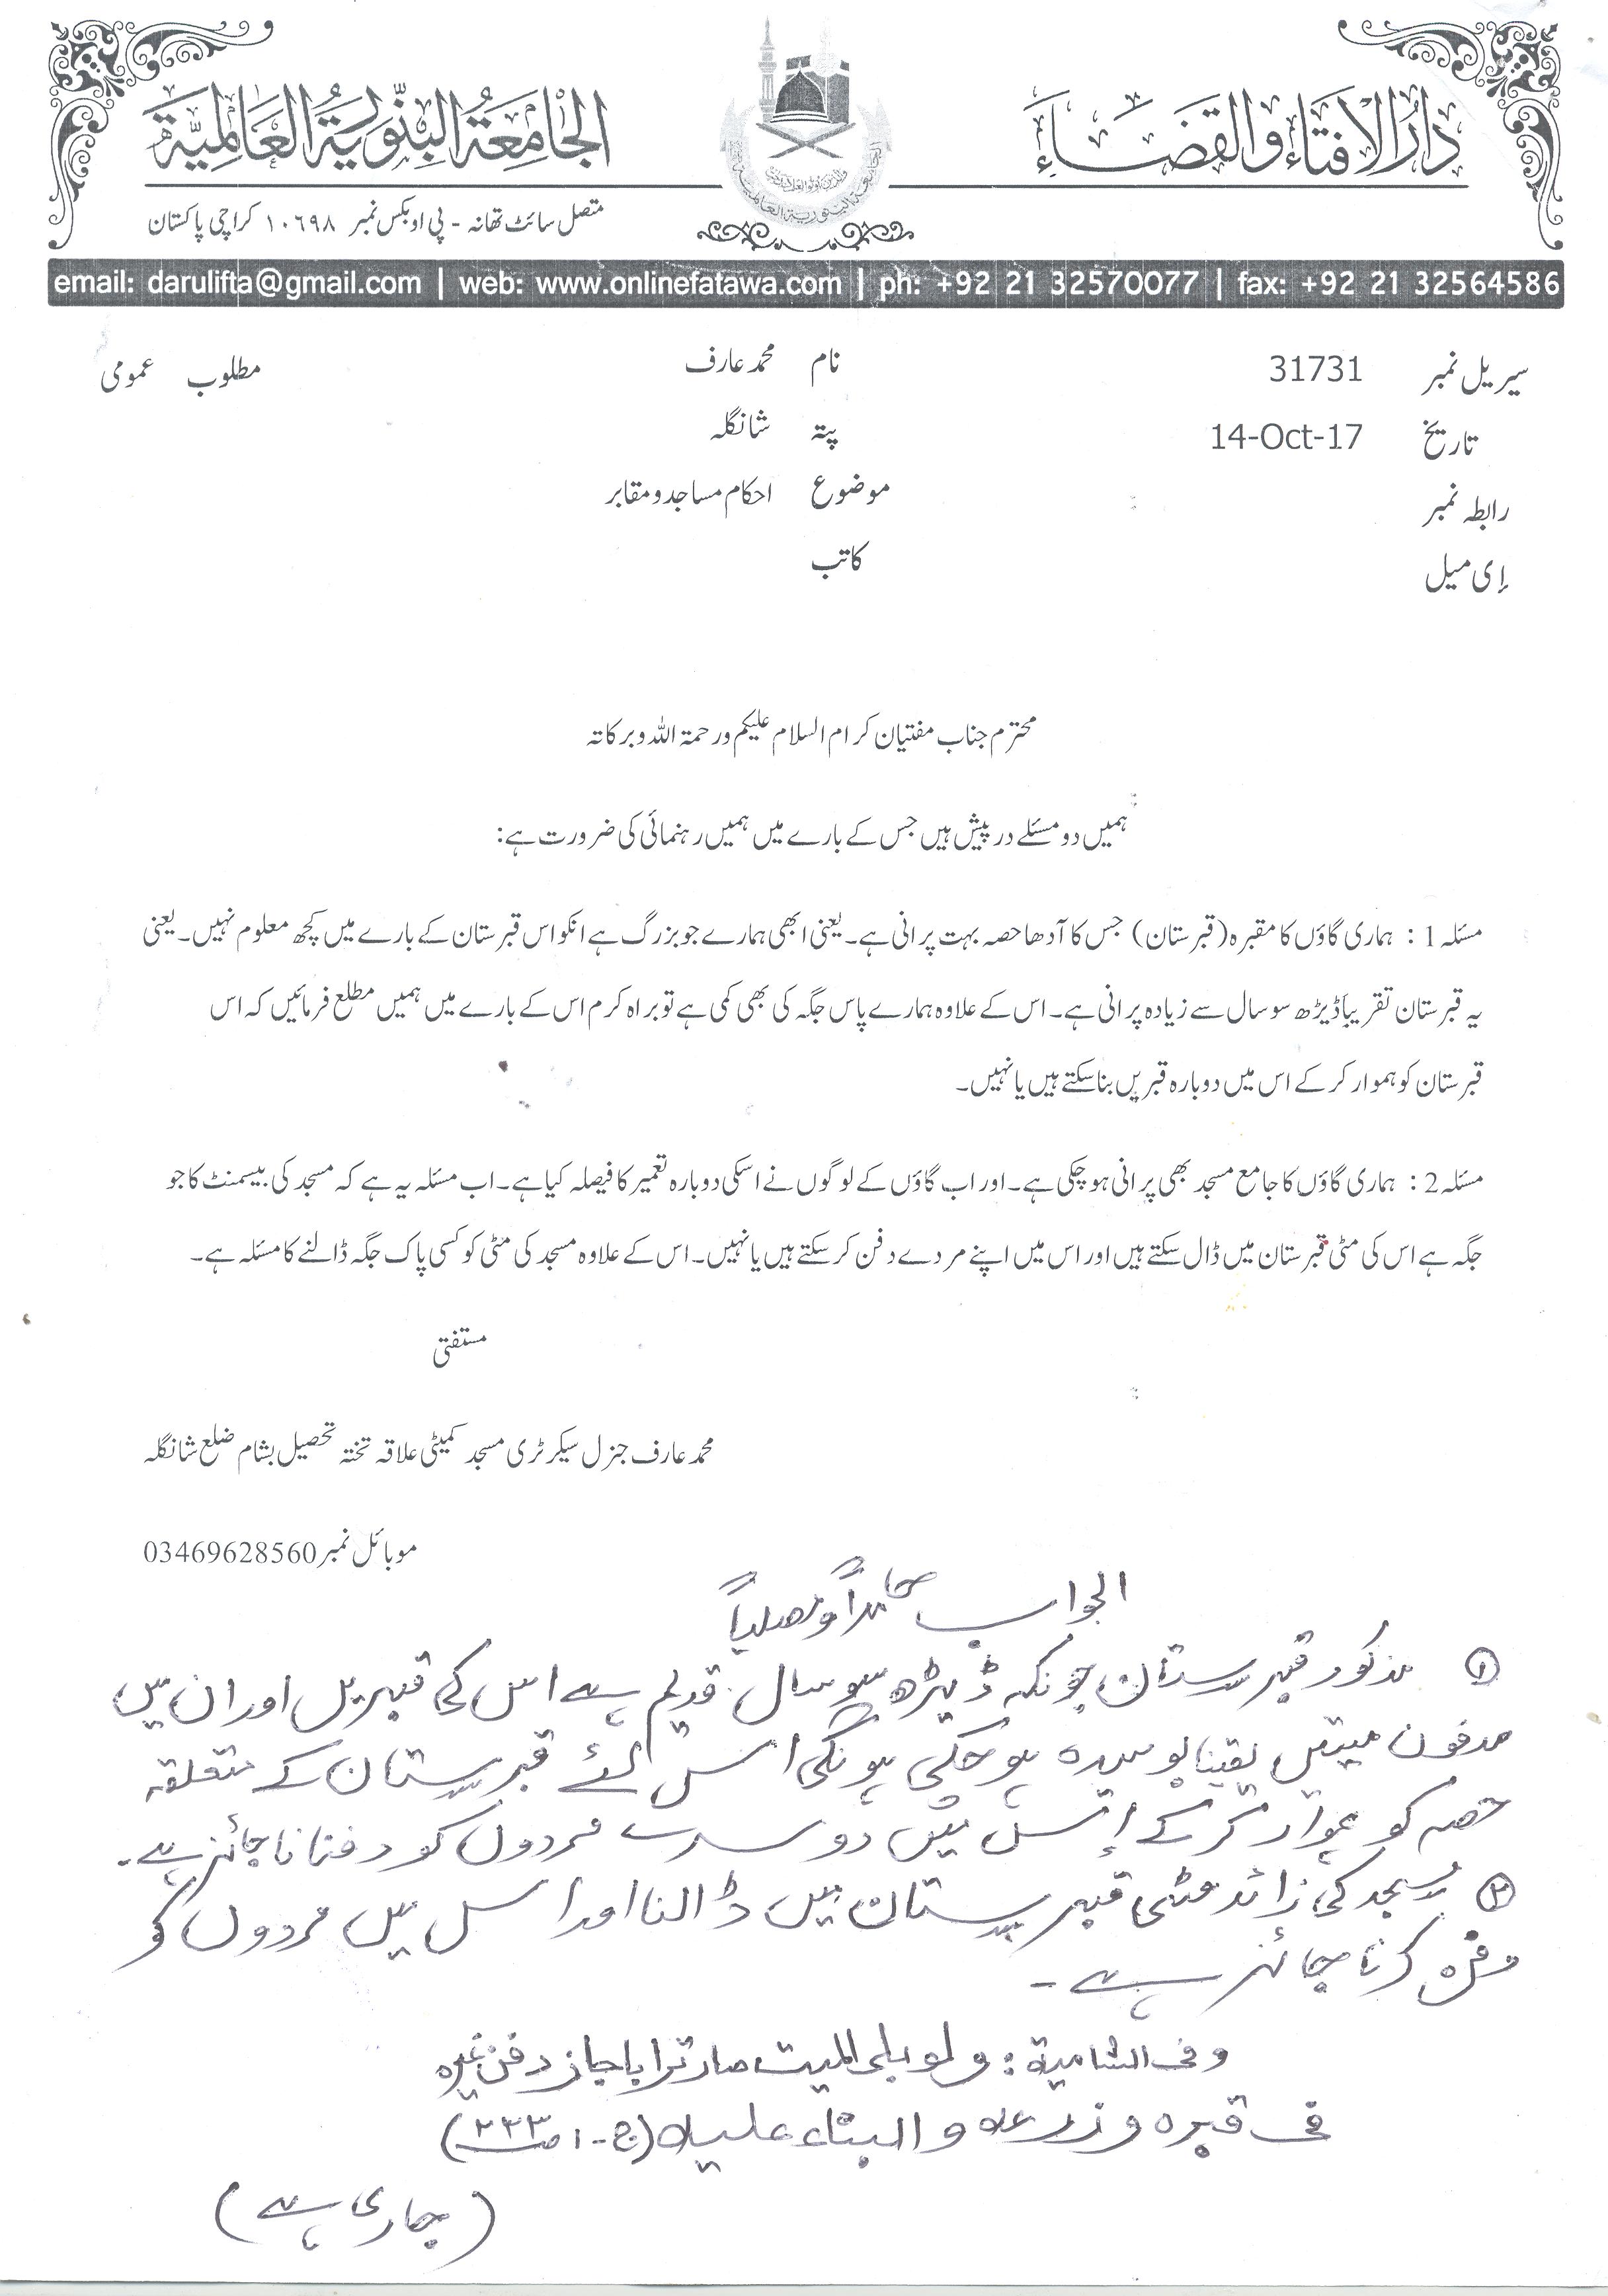 دارالافتاء والقضاء
الجامعة البنورية العالمية
متصل سائٹ تھانہ - پی او بکس نمبر ١٠٦٩٨ کراچی پاکستان
email: darulifta@gmail.com | web: www.onlinefatawa.com | ph: +92 21 32570077 | fax: +92 21 32564586
سیریل نمبر 31731 نام محمد عارف مطلوب عمومی
تاریخ 14-Oct-17 پتہ شانگلہ
رابطہ نمبر موضوع احکام مساجد و مقابر
اِی میل کاتب
محترم جناب مفتیان کرام السلام علیکم ورحمۃ اللہ وبرکاتہ
ہمیں دو مسئلے درپیش ہیں جس کے بارے میں ہمیں رہنمائی کی ضرورت ہے:
مسئلہ 1 : ہماری گاؤں کا مقبرہ (قبرستان) جس کا آدھا حصہ بہت پرانی ہے۔ یعنی ابھی ہمارے جو بزرگ ہے انکو اس قبرستان کے بارے میں کچھ معلوم نہیں۔ یعنی
یہ قبرستان تقریباً ڈیڑھ سو سال سے زیادہ پرانی ہے۔ اس کے علاوہ ہمارے پاس جگہ کی بھی کمی ہے تو براہ کرم اس کے بارے میں ہمیں مطلع فرمائیں کہ اس
قبرستان کو ہموار کر کے اس میں دوبارہ قبریں بنا سکتے ہیں یا نہیں۔
مسئلہ 2 : ہماری گاؤں کا جامع مسجد بھی پرانی ہو چکی ہے۔ اور اب گاؤں کے لوگوں نے اسکی دوبارہ تعمیر کا فیصلہ کیا ہے۔ اب مسئلہ یہ ہے کہ مسجد کی بیسمنٹ کا جو
جگہ ہے اس کی مٹی قبرستان میں ڈال سکتے ہیں اور اس میں اپنے مردے دفن کر سکتے ہیں یا نہیں۔ اس کے علاوہ مسجد کی مٹی کو کسی پاک جگہ ڈالنے کا مسئلہ ہے۔
مستفتی
محمد عارف جنرل سیکرٹری مسجد کمیٹی علاقہ تختہ تحصیل بشام ضلع شانگلہ
موبائل نمبر 03469628560
الجواب حامداً ومصلیاً
① مذکور قبرستان چونکہ ڈیڑھ سو سال قدیم ہے اس کی قبریں اور ان میں
مدفون میتیں یقینا بوسیدہ ہو چکی ہونگی اس لئے قبرستان کے متعلقہ
حصہ کو ہموار کر کے اس میں دوسرے مردوں کو دفنانا جائز ہے۔
② مسجد کی زائد مٹی قبرستان میں ڈالنا اور اس میں مردوں کو
دفن کرنا جائز ہے۔
وفی الشامیة: ولو بلی المیت صار ترابا جاز دفن غیرہ
فی قبرہ وزرعہ والبناء علیہ (ج-١ ص٢٣٣)
(جاری ہے)